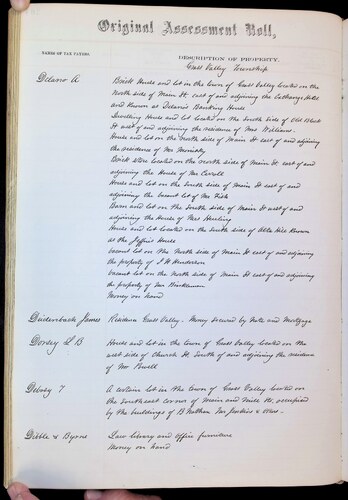 Original Assessment Roll,
NAMES OF TAX PAYERS.
DESCRIPTION OF PROPERTY.
Grass Valley Township
Delano A
Brick House and lot in the town of Grass Valley located on the
North side of Main St east of and adjoining the Exchange Hotel
and Known as Delano's Banking House
Dwelling House and lot located on the South side of
St west of and adjoining the residence of Mrs Williams.
House and lot on the north side of Main St east of and adjoining
the residence of Mr
Brick store located on the north side of Main St east of and
adjoining the House of Mr Carroll
House and lot on the South side of Main St east of and
adjoining the vacant lot of Mr Fisk
Barn and lot on the South side of Main St west of and
adjoining the House of Mrs
House and lot located on the South side of Hill Known
as the House
Vacant lot on the North side of Main St east of and adjoining
the property of J H Henderson
Vacant lot on the north side of Main St east of and adjoining
the property of Mr
Money on hand
James
Residence Grass Valley. Money secured by Note and Mortgage
Dorsey S B
House and lot in the town of Grass Valley located on the
west side of Church St. South of and adjoining the residence
of Mr Powell
A certain lot in the town of Grass Valley located on
the Southeast corner of Main and Mill Sts. occupied
by the buildings of B Nathan Mr Jenkins & others.
Dibble & Byrne
Law library and office furniture
Money on hand